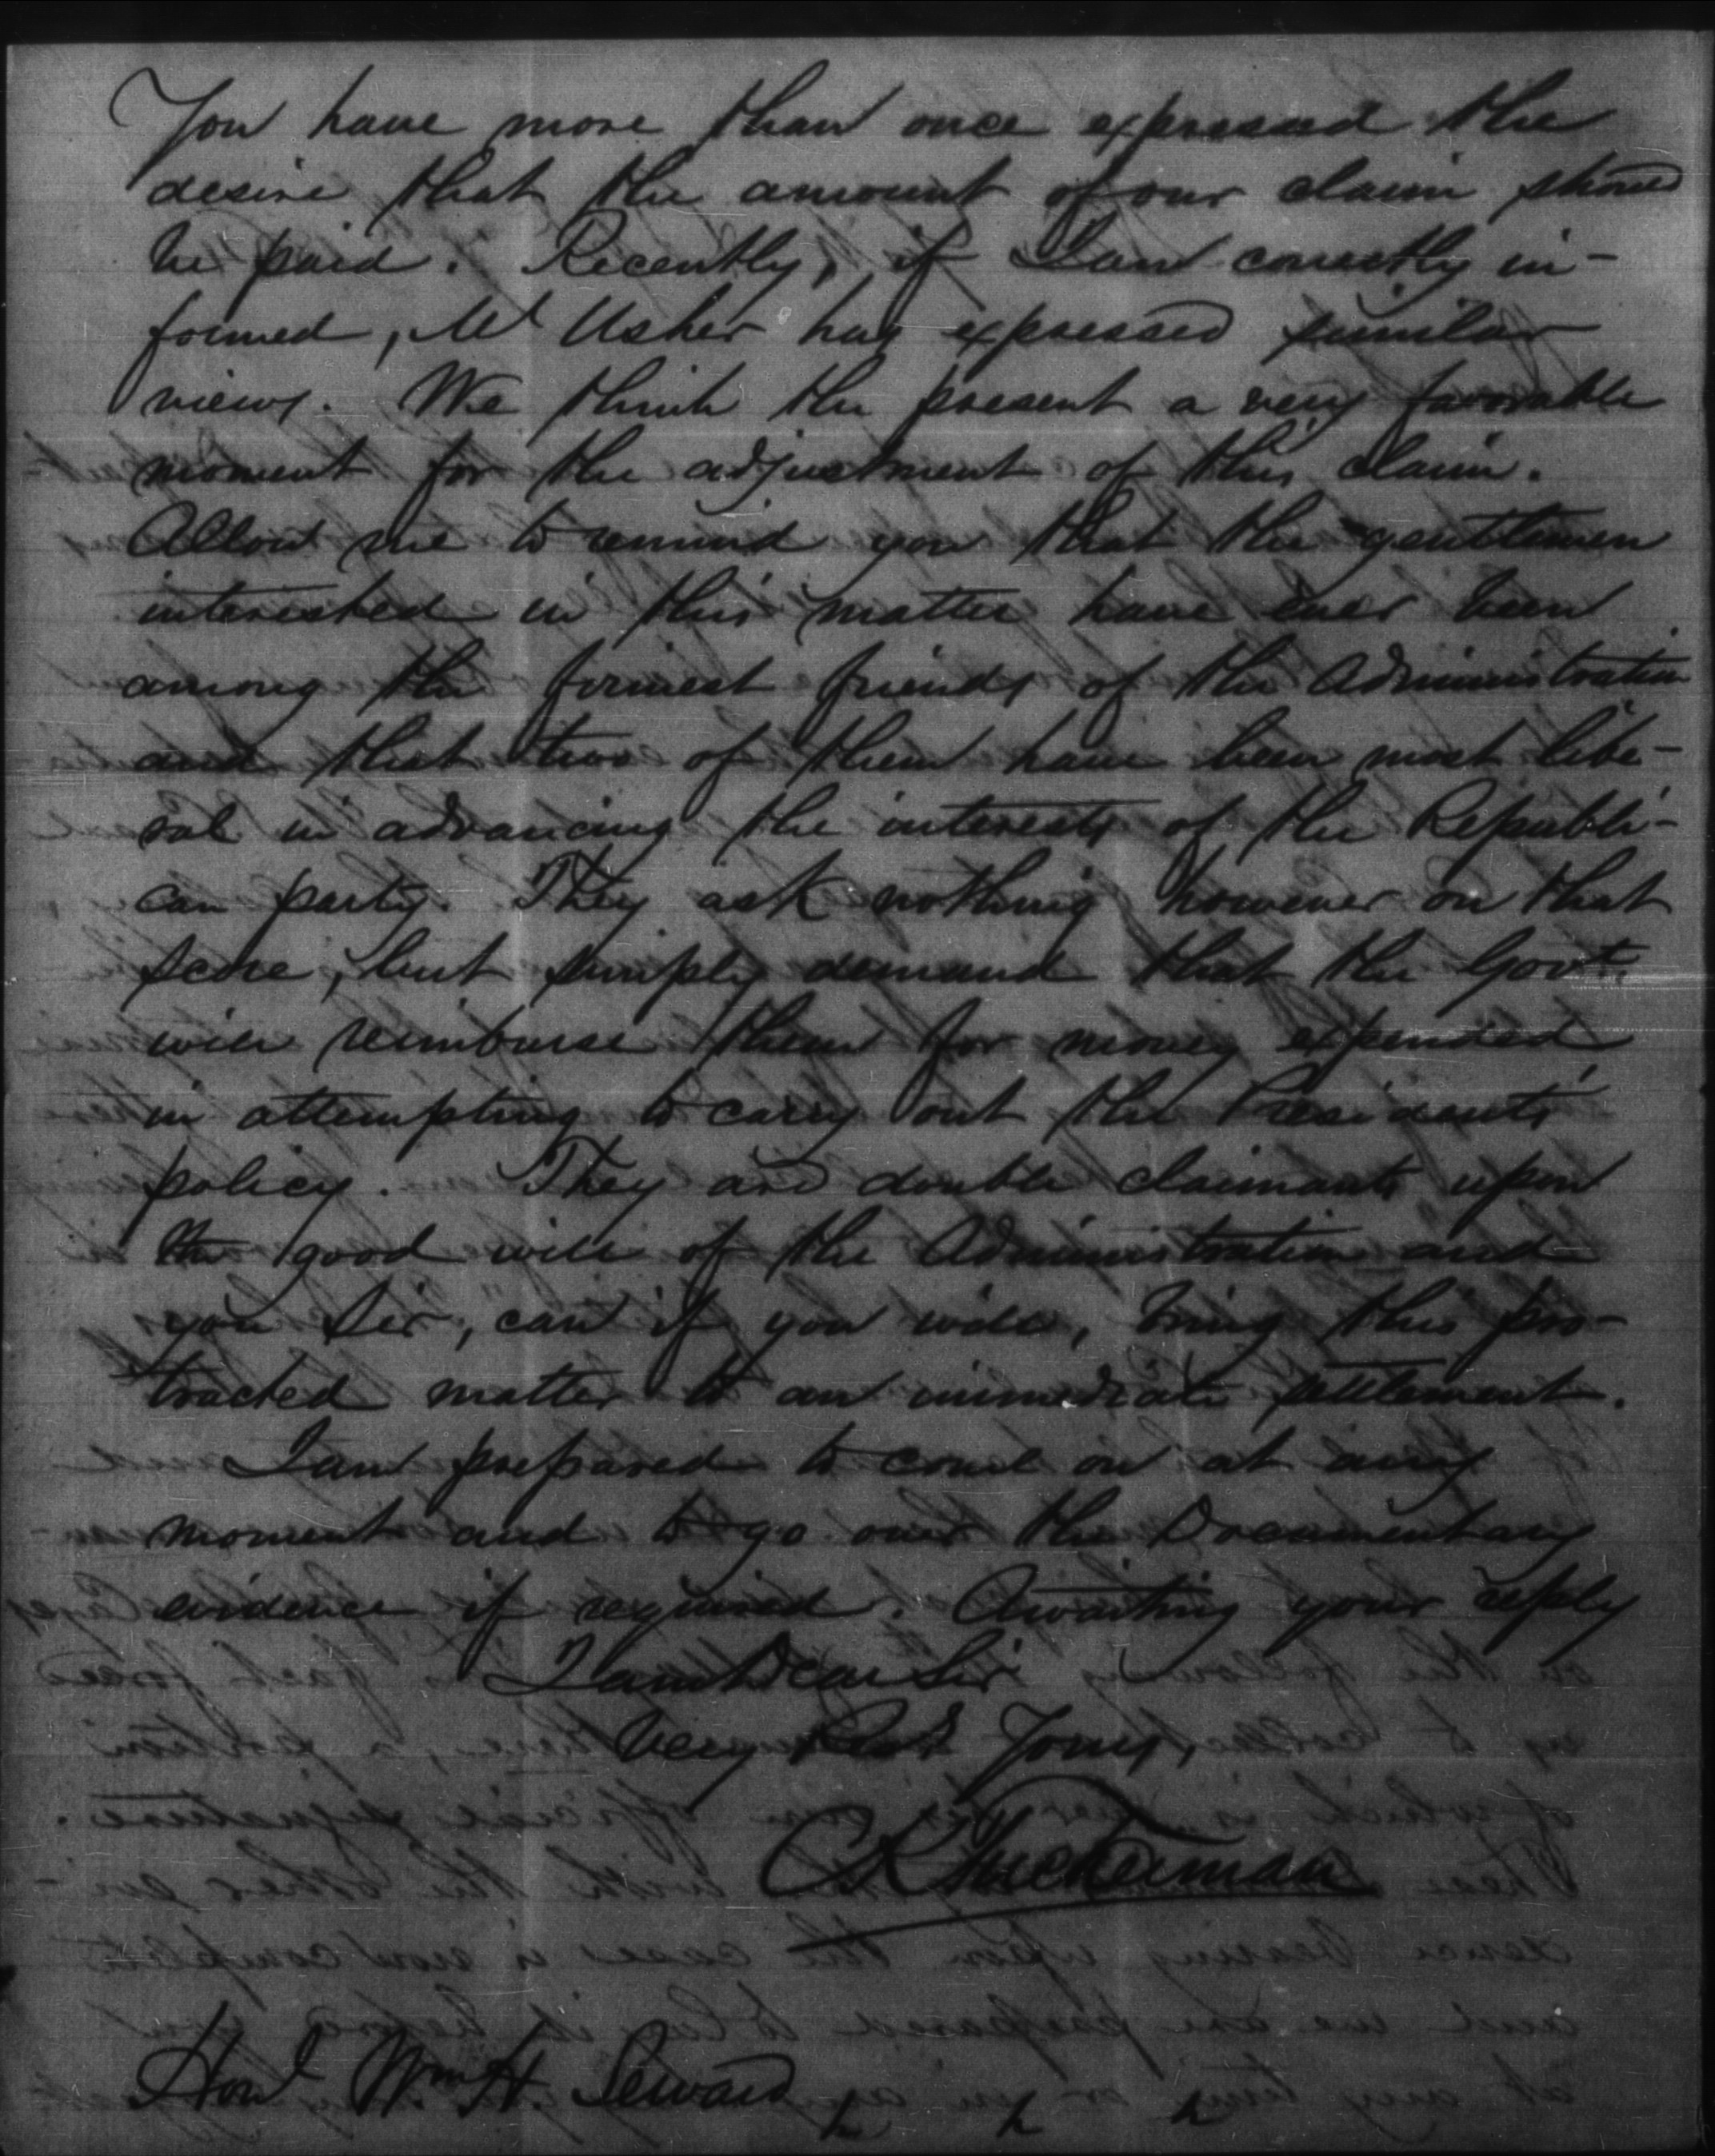 You have more than once expressed the
desire that the amount of our claim should
be paid. Recently, if I am correctly in-
formed, Mr Usher has expressed similar
views. We think the present a very favorable
moment for the adjustment of this claim.
Allow me to remind you that the gentlemen
interested in this matter have ever been
among the firmest friends of the Administration
and that two of them have been most libe-
ral in advancing the interests of the Republi-
can party. They ask nothing however on that
score, but simply demand that the Govt.
will reimburse them for money expended
in attempting to carry out the Presidents'
policy. They are double claimants upon
the good will of the Administration and
you Sir, can if you will, bring this pro-
tracted matter to an immediate settlement.
I am prepared to come on at any
moment and to go over the Documentary
evidence if required. Awaiting your reply
I am Dear Sir
Very Rest Yours,
CK Tuckerman
Honl Wm H. Seward